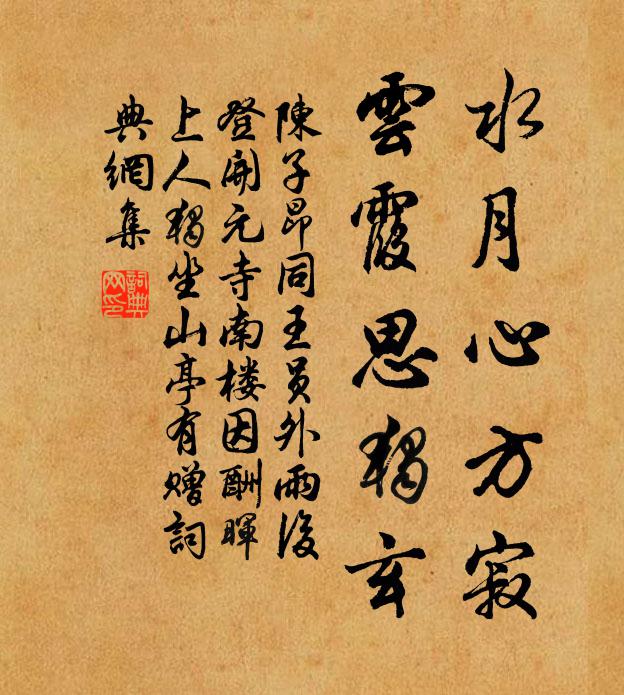 水月心方寂
雲霞思獨玄
陳子昂同王員外雨後
登開元寺南樓因酬暉
上人獨坐山亭有贈詞
典網集
詞典
网印